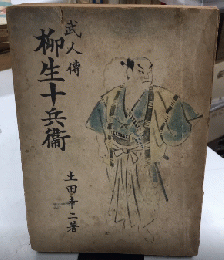 武人傳
柳生十兵衞
土田幸二著